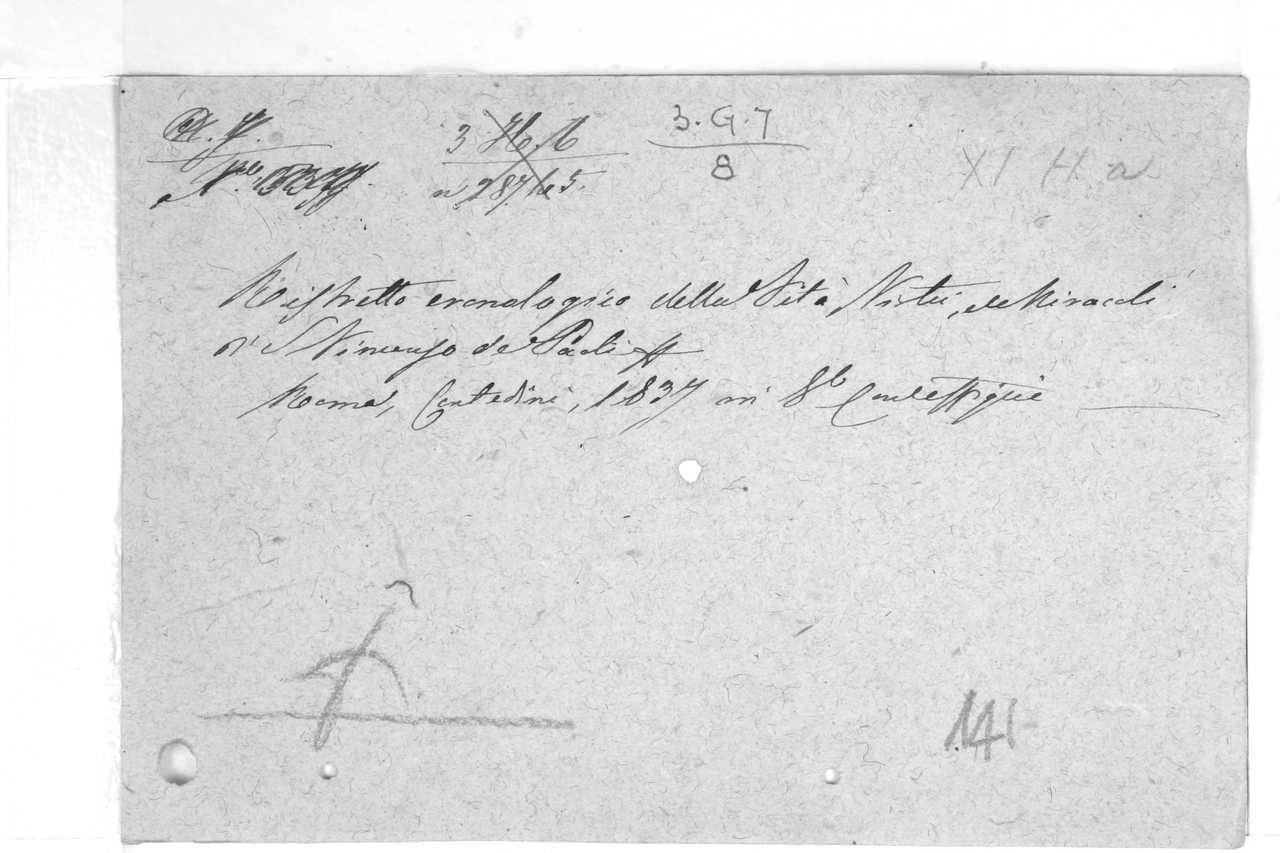 3 H. b 3. G. 7
n 287 bis 5. 8
XI H. a
Ristretto cronologico della Vità, Virtù, e Miracoli
di S Vincenzo de Paoli
Roma, Contedini, 1837 in 8º Con effigie
141